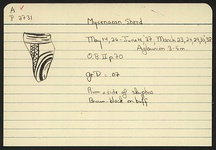 A
P 2731
Mycenaean Sherd
May 14, 26 - June 14, 37 March 23, 24, 25, 26, 38
Aglaurion 3-6m
O.B. II p. 70
gr. D = .07
Rim + side of skyphos
Brown-black on buff